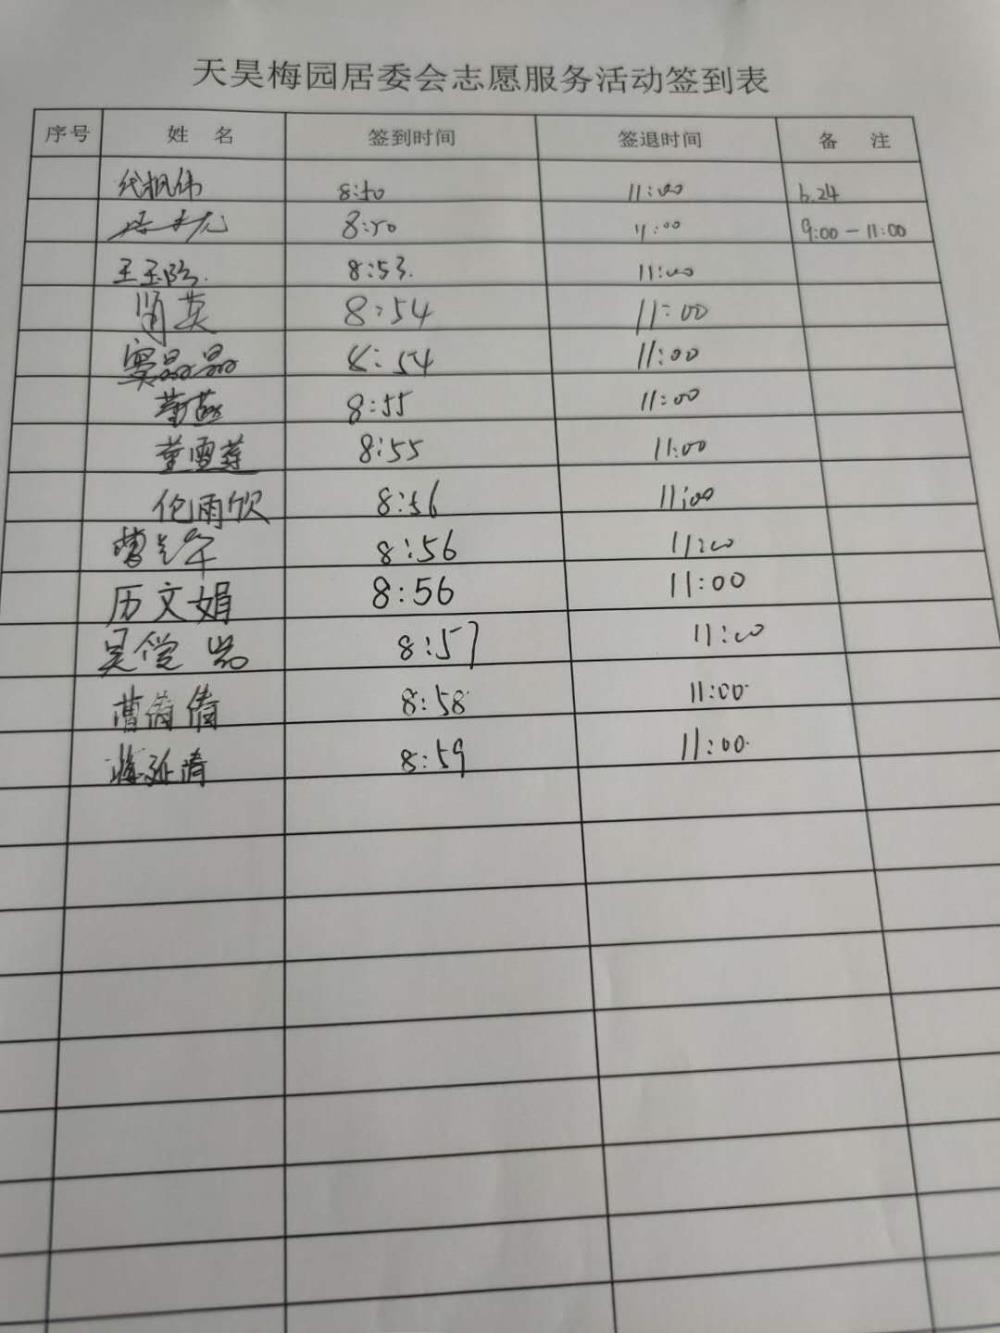 天昊梅园居委会志愿服务活动签到表
序号 姓 名 签到时间 签退时间 备 注
代枫伟 8:50 11:00 6.24
8:50 11:00 9:00-11:00
王玉 8:53. 11:00
肖英 8:54 11:00
窦晶晶 8:54 11:00
8:55 11:00
董雪莲 8:55 11:00
伦雨欣 8:56 11:00
曹 8:56 11:00
历文娟 8:56 11:00
吴莹 8:57 11:00
曹倩倩 8:58 11:00
8:59 11:00